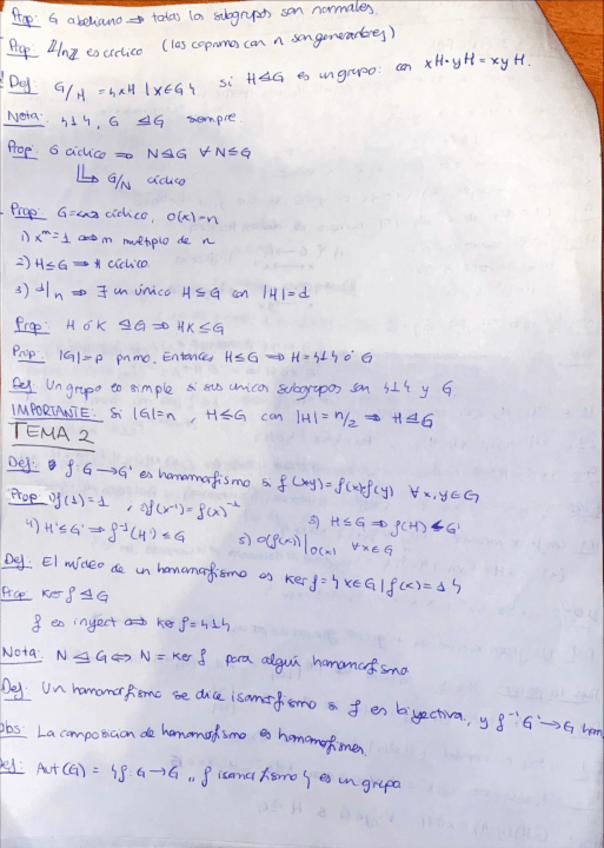 Prop: G abeliano ⇒ todos los subgrupos son normales.
Prop: ℤ/nℤ es cíclico (los coprimos con n son generadores)
Def: G/H = {xH | x∈G} si H⊴G es un grupo: con xH·yH = xyH.
Nota: {1}, G ⊴G siempre.
Prop: G cíclico ⇒ N⊴G ∀N≤G
↳ G/N cíclico
Prop: G=<x> cíclico, o(x)=n
1) x^m=1 ⇔ m múltiplo de n
2) H≤G ⇒ H cíclico.
3) d/n ⇒ ∃ un único H≤G con |H|=d
Prop: H ó K ⊴G ⇒ HK≤G
Prop: |G|=p primo. Entonces H≤G ⇒ H={1} ó G
Def: Un grupo es simple si sus unicos subgrupos son {1} y G.
IMPORTANTE: Si |G|=n, H≤G con |H|=n/2 ⇒ H⊴G
TEMA 2
Def: f: G→G' es homomorfismo si f(xy)=f(x)f(y) ∀x,y∈G
Prop: 1) f(1)=1, 2) f(x⁻¹)=f(x)⁻¹ 3) H≤G ⇒ f(H)≤G'
4) H'≤G' ⇒ f⁻¹(H')≤G 5) o(f(x))|o(x) ∀x∈G
Def: El núcleo de un homomorfismo es Ker f={x∈G | f(x)=1}
Prop Ker f⊴G
f es inyect ⇔ ker f={1}
Nota: N⊴G ⇔ N=Ker f para algún homomorfismo
Def: Un homomorfismo se dice isomorfismo si f es biyectiva, y f⁻¹: G'→G hom
obs: La composicion de homomorfismo es homomorfismo.
Def: Aut(G) = {f: G→G, f isomorfismo} es un grupo